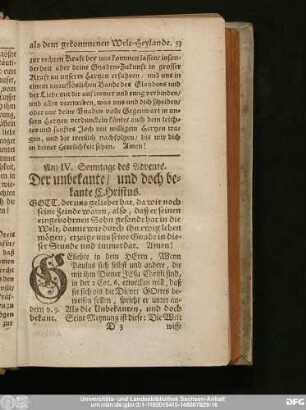 als dem gekommenen Welt-Heylande. 53
zur rechten Buß
vor uns kommen lassen; inson-
derheit aber deine Gnaden-Zukunfft in grosser
Krafft an unseren Hertzen erfahren, und uns in
einem unauflößlichen Bande des Glaubens und
der Liebe mit dir auf immer und ewig verbinden,
und alles vertreiben, was uns und dich scheiden,
oder nur deine Gnaden-volle Gegenwart in un-
seren Hertzen verdunckeln könte; auch dein leich-
tes und sanfftes Joch mit willigem Hertzen tra-
gen, und dir treulich nachfolgen, bis wir dich
in deiner Herrlichkeit sehen. Amen!
Am IV. Sonntage des Advents.
Der unbekante, und doch be-
kante Christus.
GOTT, der uns geliebet hat, da wir noch
seine Feinde waren, also, daß er seinen
eingebohrnen Sohn gesandt hat in die
Welt, damit wir durch ihn ewig leben
mögen, erzeige uns seine Gnade in die-
ser Stunde und immerdar. Amen!
Geliebte in dem HErrn, Wenn
Paulus sich selbst und andere, die
mit ihm Diener JEsu Christi sind,
in der 2 Cor. 6. erwecken will, daß
sie sich als die Diener GOttes be-
weisen sollen, spricht er unter an-
dern v. 9. Als die Unbekanten, und doch
bekant. Seine Meynung ist diese: Die Welt
D 3 wisse
Universitäts- und Landesbibliothek Sachsen-Anhalt